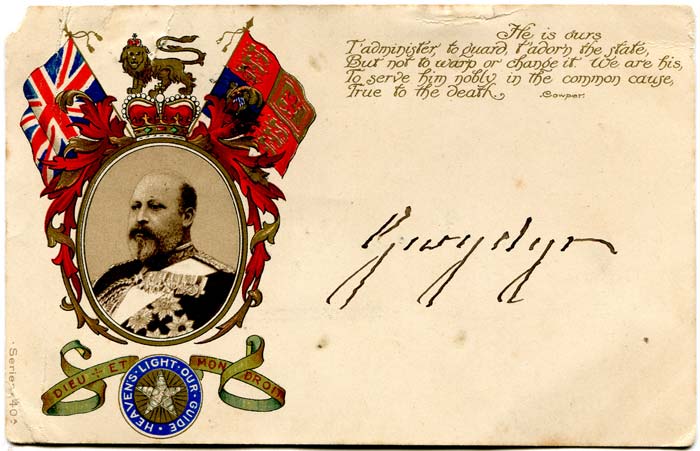 He is ours
T'administer, to guard, t'adorn the state,
But not to warp or change it. We are his,
To serve him nobly in the common cause,
True to the death,
Cowper.
Gwydyr
DIEU + ET MON DROIT
HEAVEN'S · LIGHT · OUR · GUIDE
Serie